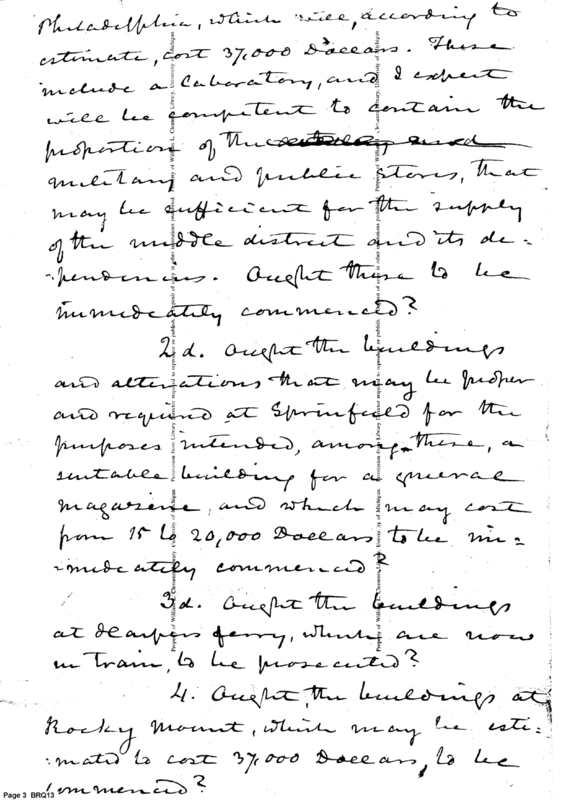 Philadelphia, which will, according to
estimate, cost 37,000 Dollars. These
include a Laboratory, and I expect
will be competent to contain the
proportion of the
military and public stores, that
may be sufficient for the supply
of the middle district and its de-
-pendencies. Ought these to be
immediately commenced?
2d. Ought the buildings
and alterations that may be proper
and required at Sprinfield for the
purposes intended, among these, a
suitable building for a general
magazine, and which may cost
from 15 to 20,000 Dollars to be im-
-mediately commenced?
3d. Ought the buildings
at Harpers ferry, which are now
in train, to be prosecuted?
4. Ought, the buildings at
Rocky Mount, which may be esti-
-mated to cost 37,000 Dollars, to be
commenced?
Page 3 BRQ13